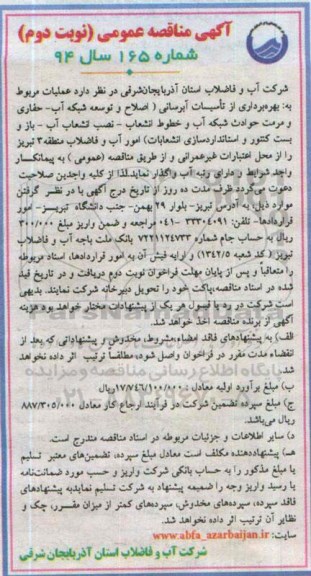 آگهی مناقصه عمومی (نوبت دوم)
شماره ۱۶۵ سال ۹۴
شرکت آب و فاضلاب استان آذربایجان‌شرقی در نظر دارد عملیات مربوط
به: بهره‌برداری از تأسیسات آبرسانی ( اصلاح و توسعه شبکه آب- حفاری
و مرمت حوادث شبکه آب و خطوط انشعاب - نصب انشعاب آب - باز و
بست کنتور و استانداردسازی انشعابات) امور آب و فاضلاب منطقه ۳ تبریز
را از محل اعتبارات غیرعمرانی و از طریق مناقصه (عمومی ) به پیمانکار
واجد شرایط و دارای رتبه آب واگذار نماید.لذا از کلیه واجدین صلاحیت
دعوت می‌گردد ظرف مدت ده روز از تاریخ درج آگهی با در نظر گرفتن
موارد ذیل، به آدرس تبریز- بلوار ۲۹ بهمن- جنب دانشگاه تبریز- امور
قراردادها- تلفن: ۳۳۳۰۴۰۹۱ -۰۴۱ مراجعه و ضمن واریز مبلغ ۳۰۰/۰۰۰
ریال به حساب جام شماره ۷۲۲۱۱۲۴۷۳۳ بانک ملت باجه آب و فاضلاب
تبریز ( کد شعبه ۱۳۴۲/۵) و ارایه فیش آن به امور قراردادها، اسناد مربوطه
را متعاقباً و پس از پایان مهلت فراخوان نوبت دوم دریافت و در تاریخ قید
شده در اسناد مناقصه،پاکت خود را تحویل دبیرخانه شرکت نمایند. بدیهی
است شرکت در رد یا قبول هر یک از پیشنهادات مختار خواهد بود.هزینه
آگهی از برنده مناقصه اخذ خواهد شد.
الف) به پیشنهادهای فاقد امضاء،مشروط، مخدوش و پیشنهاداتی که بعد از
انقضاء مدت مقرر در فراخوان واصل شود، مطلقاً ترتیب اثر داده نخواهد
شد.
ب) مبلغ برآورد اولیه معادل ۱۷/۷۴۶/۱۰۰/۰۰۰ریال
ج) مبلغ سپرده تضمین شرکت در فرآیند ارجاع کار معادل ۸۸۷/۳۰۵/۰۰۰
ریال می‌باشد.
د) سایر اطلاعات و جزئیات مربوطه در اسناد مناقصه مندرج است.
هـ) پیشنهاددهنده مکلف است معادل مبلغ سپرده، تضمین‌های معتبر تسلیم
یا مبلغ مذکور را به حساب بانکی شرکت واریز و حسب مورد ضمانت‌نامه
یا رسید واریز وجه را ضمیمه پیشنهاد به شرکت تسلیم نماید.به پیشنهادهای
فاقد سپرده، سپرده‌های مخدوش، سپرده‌های کمتر از میزان مقرر، چک و
نظایر آن ترتیب اثر داده نخواهد شد.
سایت: www.abfa_azarbaijan.ir
شرکت آب و فاضلاب استان آذربایجان شرقی